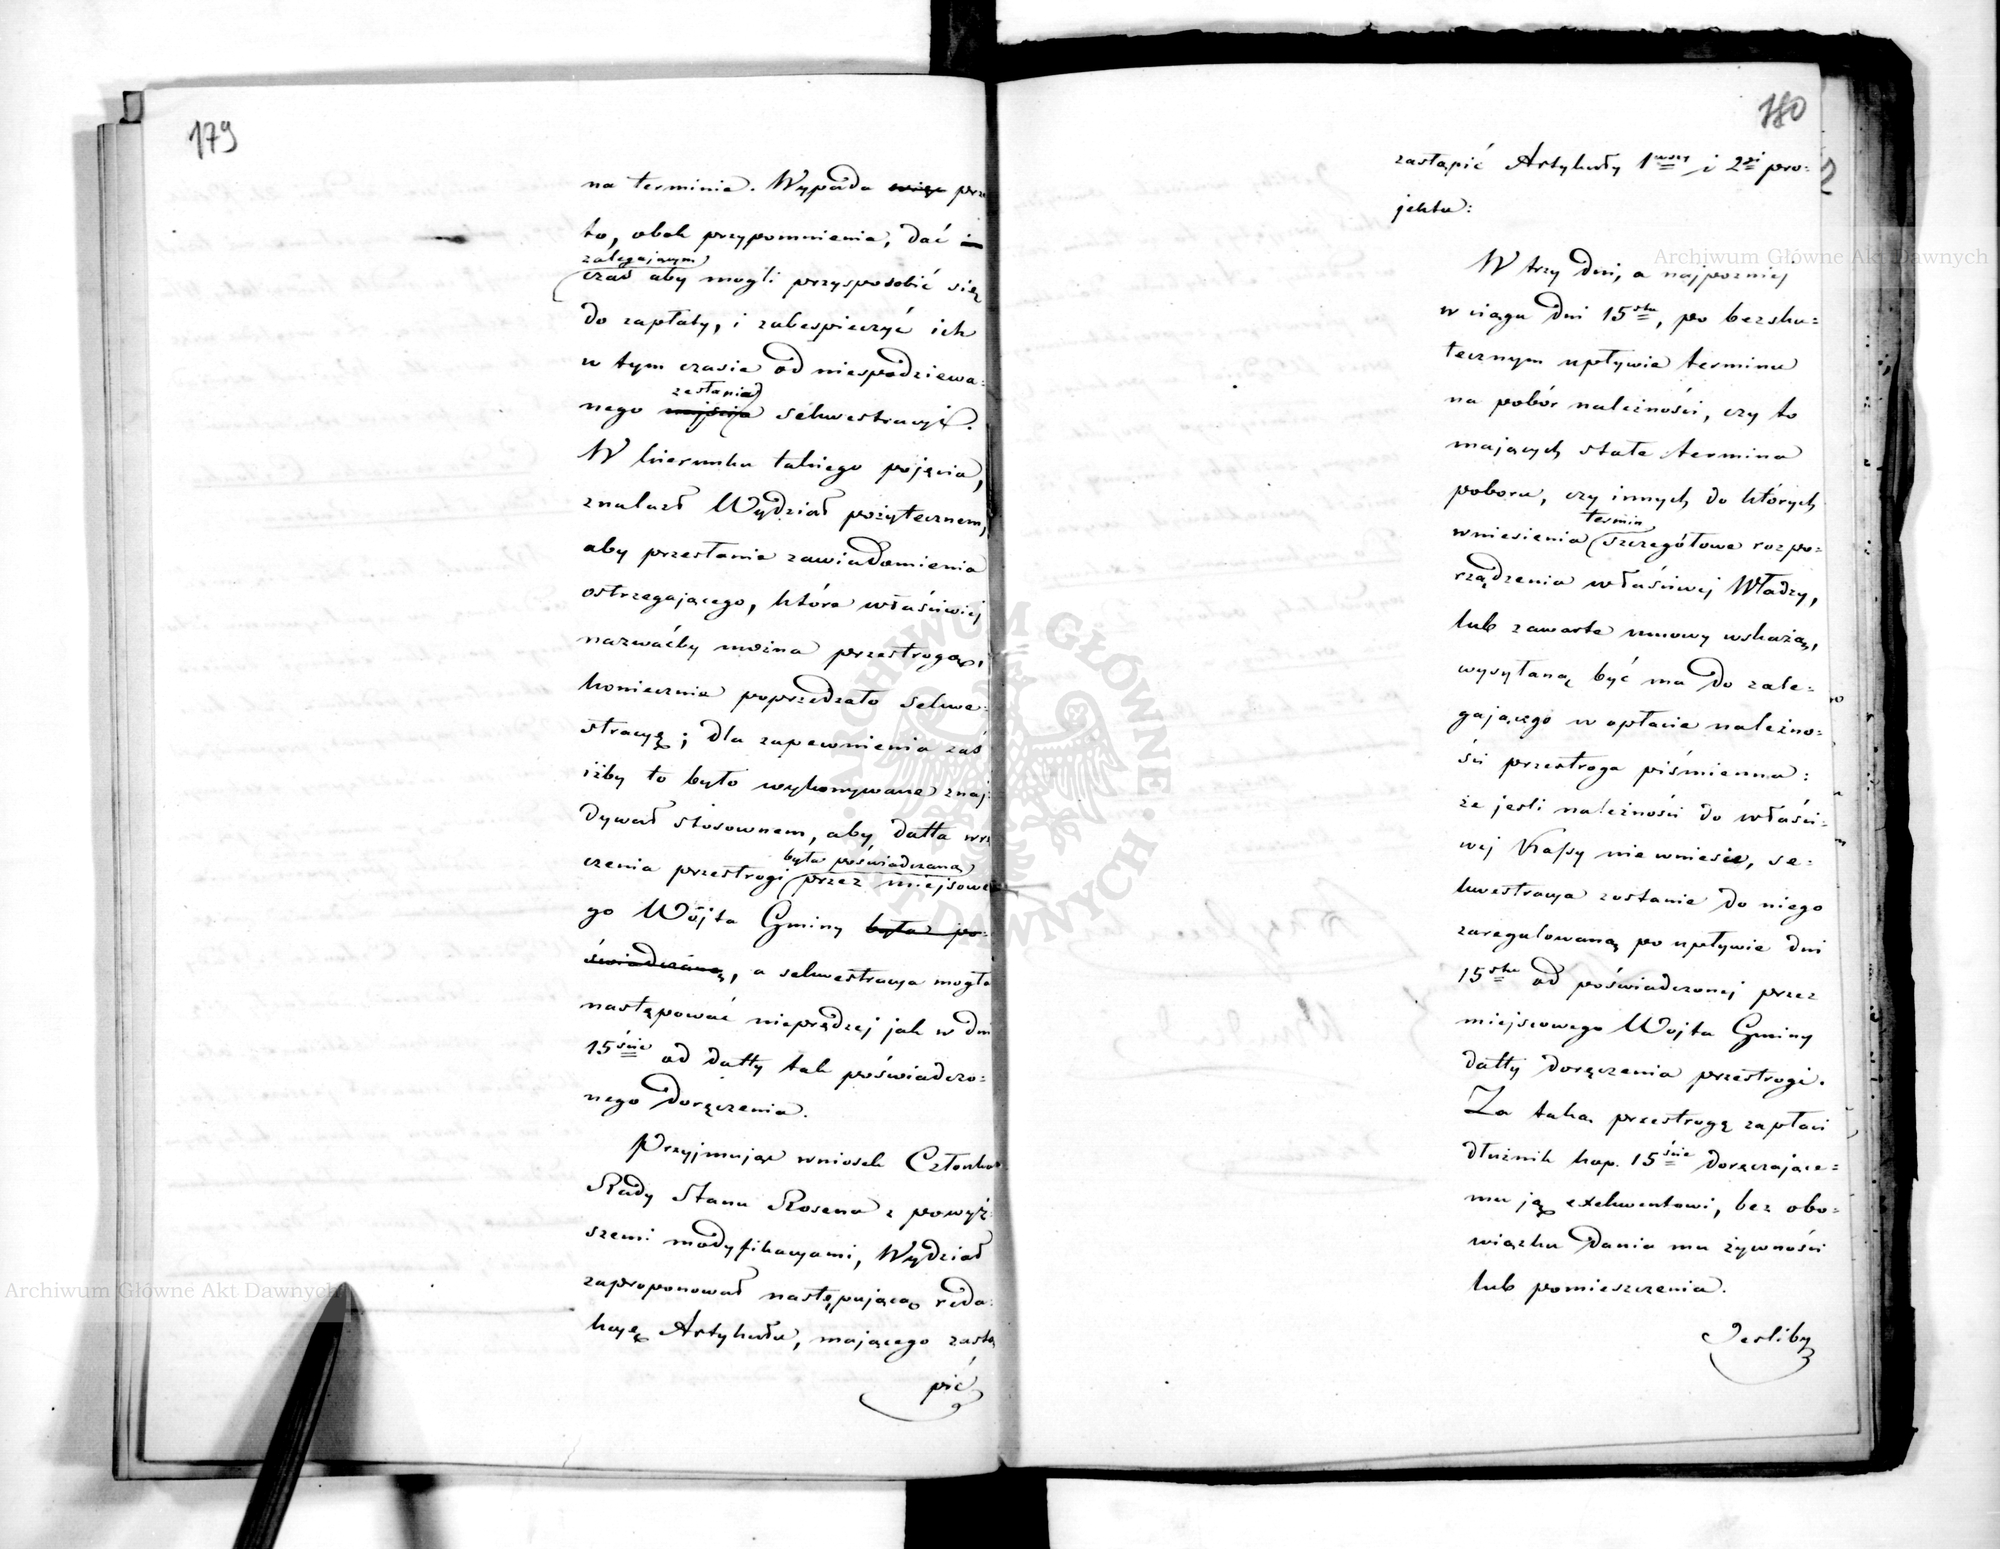 179
na terminie. Wypada więc prze
to, obok przypomnienia, dać i
zalegającym
czas aby mogli przysposobić się
do zapłaty, i zabespieczyć ich
w tym czasie od niespodziewa-
zesłania
nego najścia sekwestracyi.
W kierunku takiego pojęcia,
znalazł Wydział pożytecznem,
aby przesłanie zawiadomienia
ostrzegającego, które właściwiej
nazwaćby można przestrogą,
koniecznie poprzedzało sekwe-
stracyę; dla zapewnienia zaś
iżby to było wykonywane znaj-
dywał stosownem, aby, datta wrę
czenia przestrogi
była poświadczaną
przez miejscowe-
go Wójta Gminy była po-
świadczaną, a sekwestracya mogła
następować nieprędzej jak w dni
15ście od datty tak poświadczo-
nego doręczenia.
Przyjmując wniosek Członka
Rady Stanu Rosena z powyż-
szemi modyfikacyami, Wydział
zaproponował następującą reda-
kcyę Artykułu, mającego zastą
pić
180
zastąpić Artykuły 1wszy i 2gi pro-
jektu:
W trzy dni, a najpozniej
w ciągu dni 15stu, po bezsku-
tecznym upływie terminu
na pobór należności, czy to
mających stałe termina
poboru, czy innych do których
termin
wniesienia szczegółowe rozpo-
rządzenia właściwej Władzy,
lub zawarte umowy wskażą,
wysyłaną być ma do zale-
gającego w opłacie należno-
ści przestroga piśmienna:
że jeśli należności do właści-
wej Kassy nie wniesie, se-
kwestracya zostanie do niego
zaregulowaną po upływie dni
15stu od poświadczonej przez
miejscowego Wojta Gminy
datty doręczenia przestrogi.
Za taką przestrogę zapłaci
dłużnik kop. 15ście doręczające-
mu ją exekwentowi, bez obo-
wiązku dania mu żywności
lub pomieszczenia.
Jesliby
Archiwum Główne Akt Dawnych
Archiwum Główne Akt Dawnych
ARCHIWUM GŁÓWNE AKT DAWNYCH